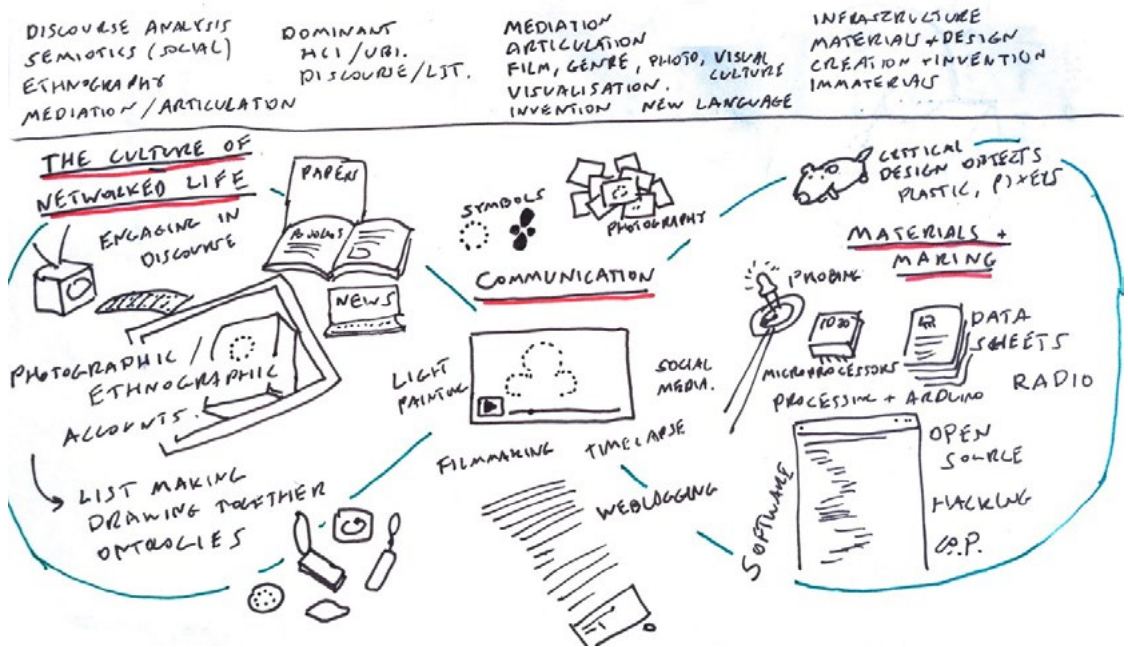 DISCOURSE ANALYSIS
SEMIOTICS (SOCIAL)
ETHNOGRAPHY
MEDIATION / ARTICULATION
DOMINANT
HCI / UBI.
DISCOURSE / LIT.
MEDIATION
ARTICULATION
FILM, GENRE, PHOTO, VISUAL
CULTURE
VISUALISATION.
INVENTION NEW LANGUAGE
INFRASTRUCTURE
MATERIALS + DESIGN
CREATION + INVENTION
IMMATERIALS
THE CULTURE OF
NETWORKED LIFE
ENGAGING IN
DISCOURSE
PAPERS
NEWS
PHOTOGRAPHIC /
ETHNOGRAPHIC
ACCOUNTS.
LIST MAKING
DRAWING TOGETHER
ONTOLOGIES
SYMBOLS
PHOTOGRAPHY
COMMUNICATION
LIGHT
PAINTING
SOCIAL
MEDIA.
FILMMAKING
TIMELAPSE
WEBLOGGING
CRITICAL
DESIGN OBJECTS
PLASTIC, PIXELS
MATERIALS +
MAKING
PROBING
MICROPROCESSORS
DATA
SHEETS
RADIO
PROCESSING + ARDUINO
SOFTWARE
OPEN
SOURCE
HACKING